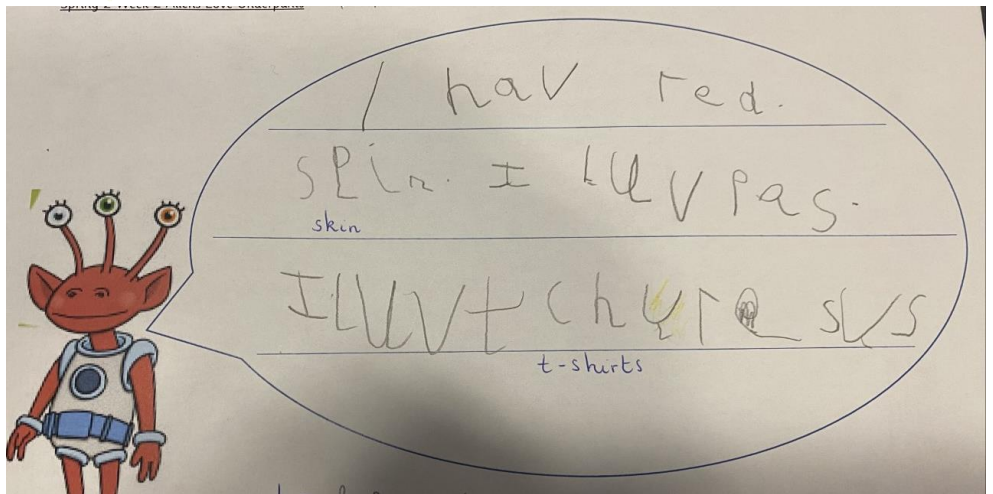 Spring 2 Week 2 Aliens Love Underpants
I hav red.
spin. I luv pas.
skin
I luv t chure svs
t-shirts